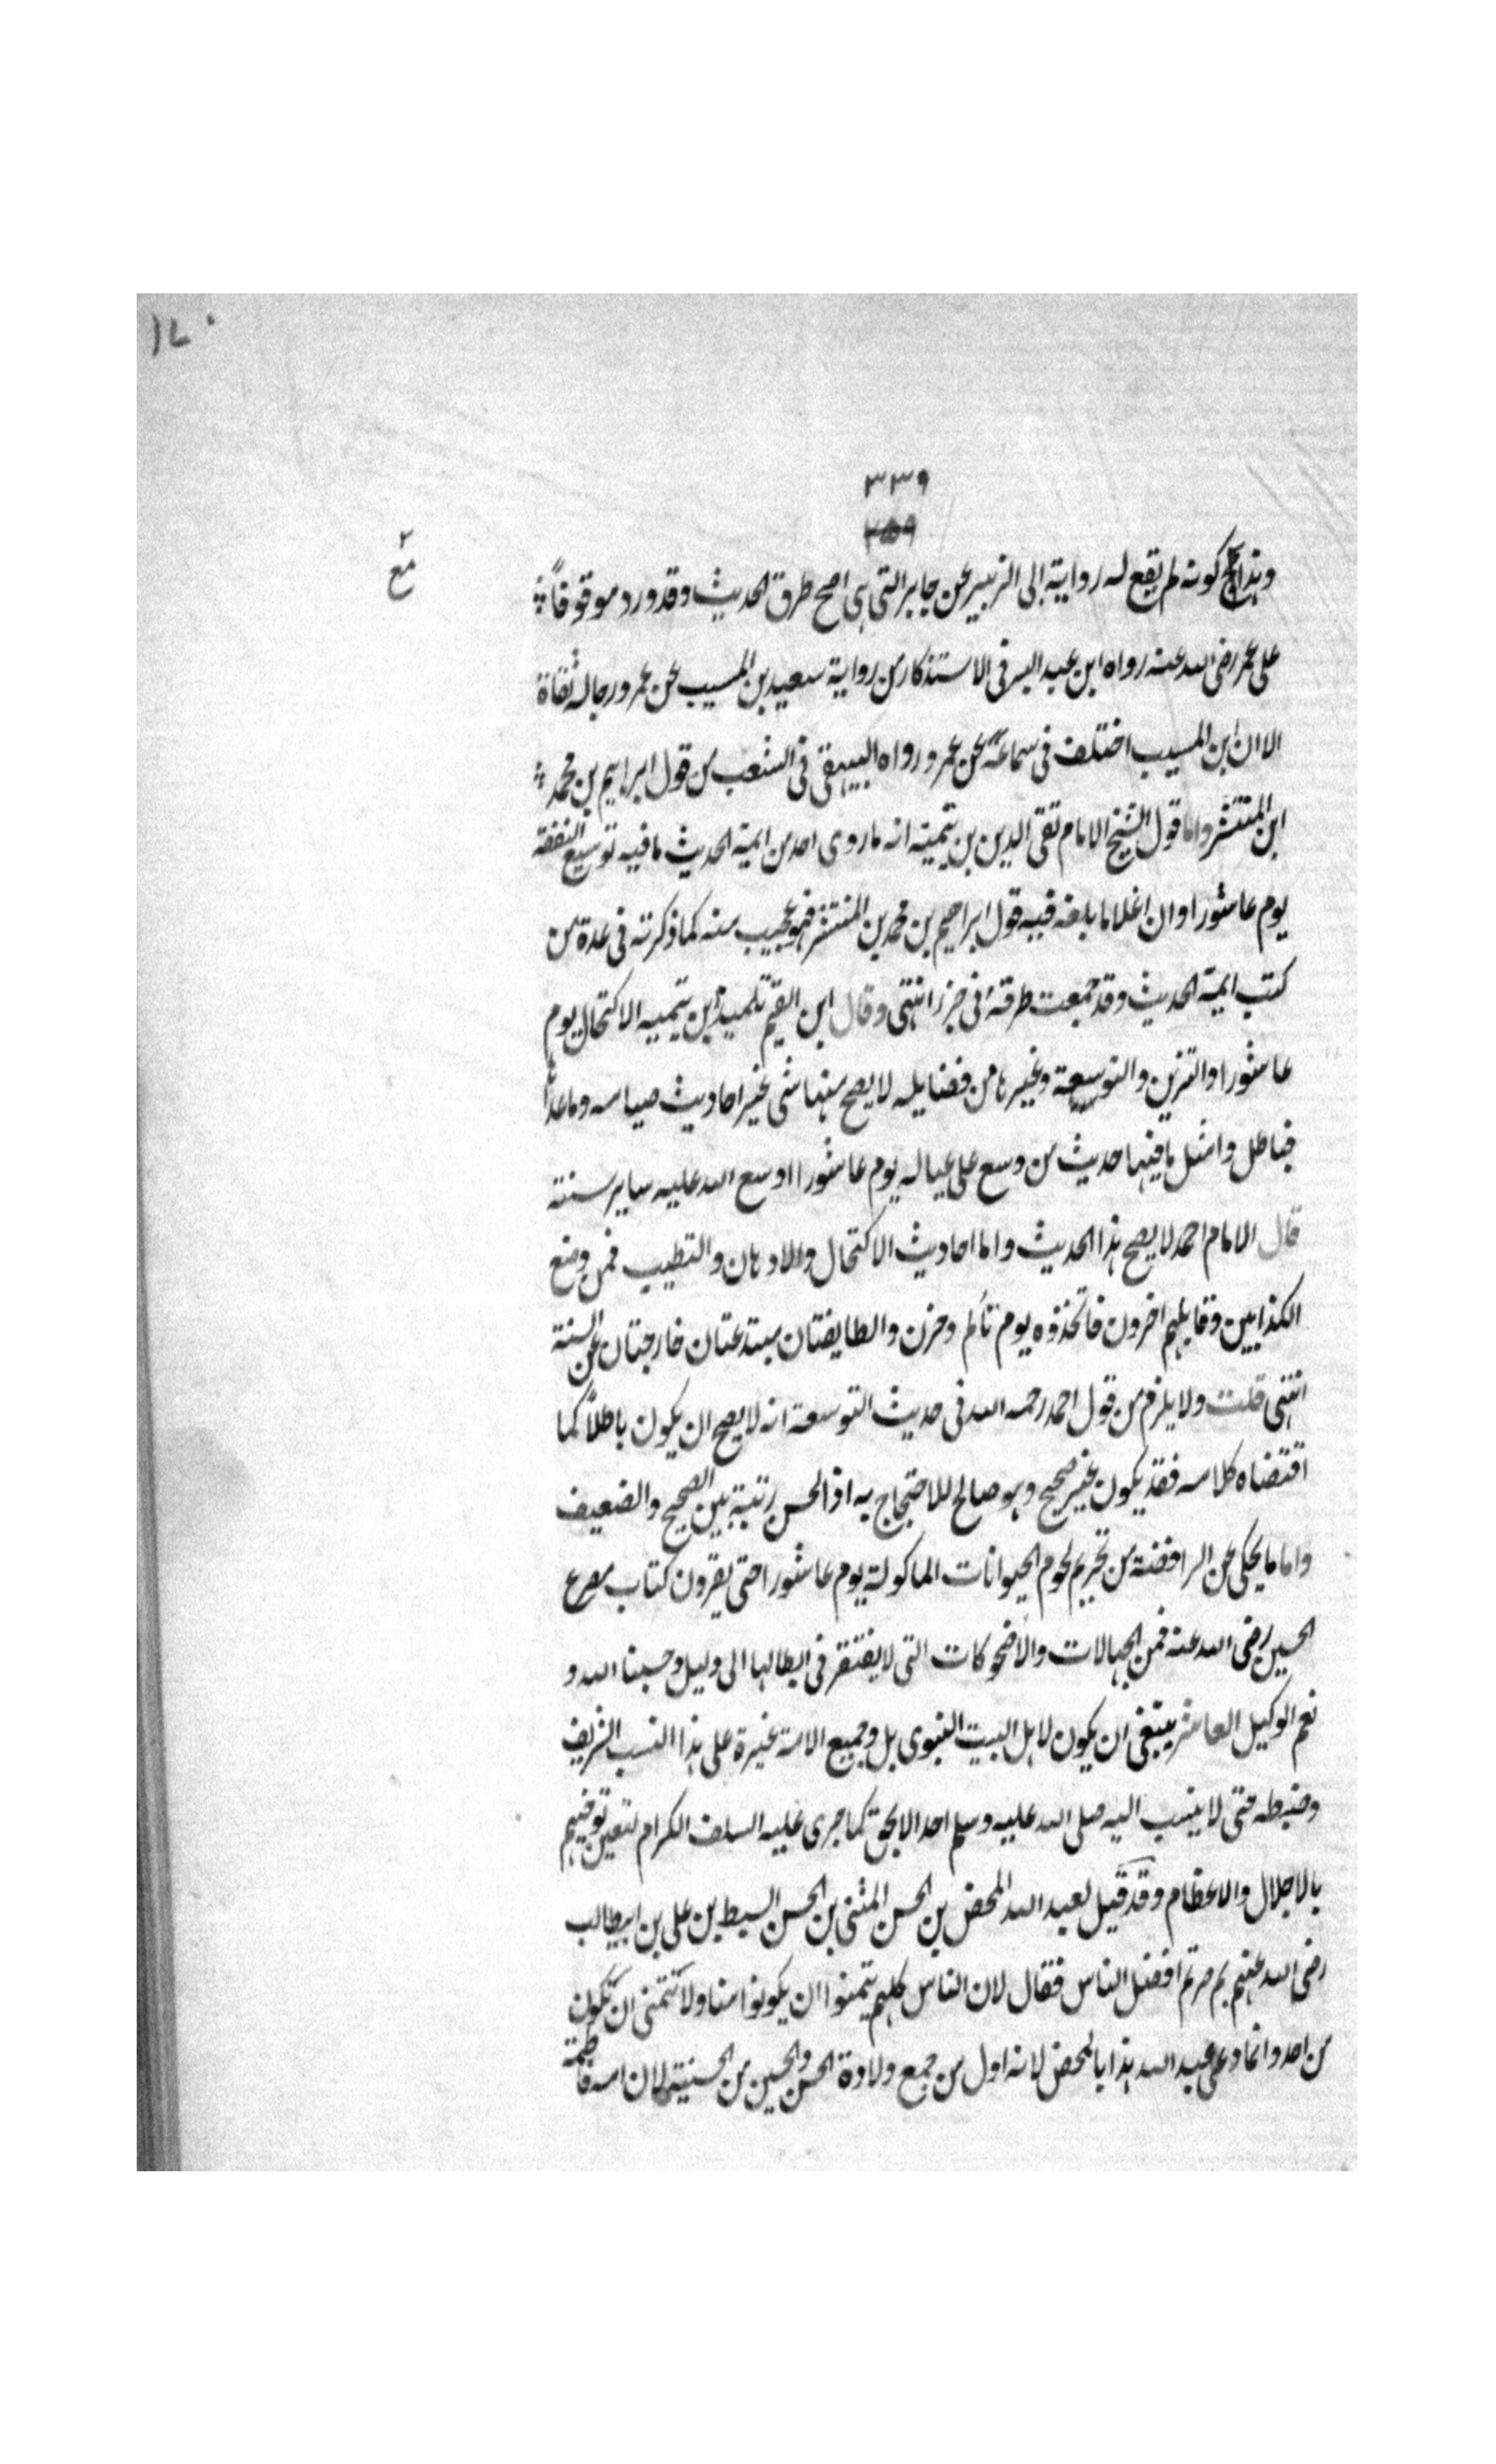 ١٧٠
٣٣٩
٣٥٩
٢
مع
وهذا مع كونه لم يقع له رواية ابى الزبير عن جابر التى هى اصح طرق الحديث وقد ورد موقوفاً
على عمر رضى الله عنه رواه ابن عبد البر فى الاستذكار من رواية سعيد بن المسيب عن عمر ورجاله ثقاة
الا ان ابن المسيب اختلف فى سماعه عن عمر ورواه البيهقى فى الشعب من قول ابراهيم بن محمد
ابن المنتشر واما قول الشيخ الامام تقى الدين بن تيمية انه ما روى احد من ايمة الحديث ما فيه توسيع النفقة
يوم عاشورا وان اعلا ما بلغه فيه قول ابراهيم بن محمد بن المنتشر فهو عجيب منه كما ذكرته فى عدة من
كتب ايمة الحديث وقد جمعت طرقه فى جزء انتهى وقال ابن القيم تلميذ ابن تيميه الاكتحال يوم
عاشورا والتزين والتوسعة وغيرها من فضايله لا يصح منها شى غير احاديث صيامه وما عداها
فباطل وامثل ما فيها حديث من وسع على عياله يوم عاشورا اوسع الله عليه ساير سنته
قال الامام احمد لا يصح هذا الحديث واما احاديث الاكتحال والادهان والتطيب فمن وضع
الكذابين وقابلهم اخرون فاتخذوه يوم تألم وحزن والطايفتان مبتدعتان خارجتان عن السنة
انتهى قلت ولا يلزم من قول احمد رحمه الله فى حديث التوسعة انه لا يصح ان يكون باطلاً كما
اقتضاه كلامه فقد يكون غير صحيح وهو صالح للاحتجاج به اذ الحسن رتبة بين الصحيح والضعيف
واما ما يحكى عن الرافضة من تحريم لحوم الحيوانات الماكولة يوم عاشورا حتى يقرون كتاب مصرع
الحسين رضى الله عنه فمن الجهالات والأضحوكات التى لا يفتقر فى ابطالها الى دليل وحسبنا الله و
نعم الوكيل العاشر ينبغى ان يكون لاهل البيت النبوى بل وجميع الامة غيرة على هذا النسب الشريف
وضبطه حتى لا ينسب اليه صلى الله عليه وسلم احد الا بحق كما جرى عليه السلف الكرام لتعين توفيهم
بالاجلال والاعظام وقد قيل لعبد الله المحض بن الحسن المثنى بن الحسن السبط بن على بن ابيطالب
رضى الله عنهم بم صرتم افضل الناس فقال لان الناس كلهم يتمنوا ان يكونوا منا ولا نتمنى ان نكون
من احد وانما دعى عبد الله هذا بالمحض لانه اول من جمع ولادة الحسن والحسين من الحسنية لان امه فاطمة